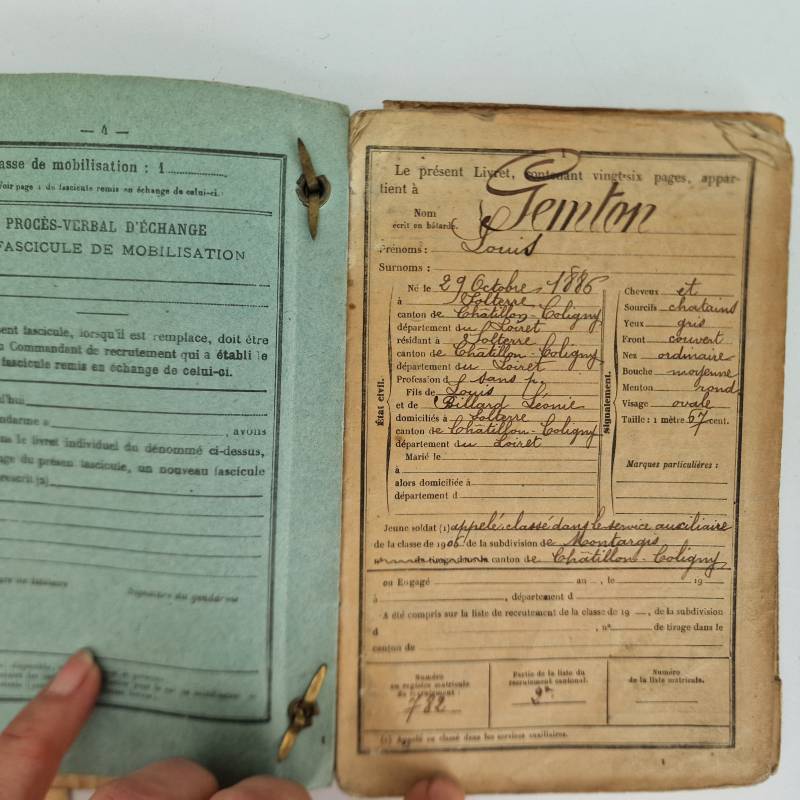 — 4 —
asse de mobilisation : 1
Voir page 1 du fascicule remis en échange de celui-ci.
PROCÈS-VERBAL D'ÉCHANGE
FASCICULE DE MOBILISATION
ent fascicule, lorsqu'il est remplacé, doit être
u Commandant de recrutement qui a établi le
fascicule remis en échange de celui-ci.
d'hui
ndarme à , avons
le livret individuel du dénommé ci-dessus,
age du présen fascicule, un nouveau fascicule
rescrit (2)
Signature du gendarme
Le présent Livret, contenant vingt-six pages, appar-
tient à
Nom Gemton
écrit en bâtarde.
Prénoms : Louis
Surnoms :
Né le 29 Octobre 1886
à Solterre
canton de Châtillon-Coligny
département du Loiret
résidant à Solterre
canton de Châtillon-Coligny
département du Loiret
Profession d sans p.
Fils de Louis
et de Billard Léonie
domiciliés à Solterre
canton de Châtillon-Coligny
département du Loiret
Marié le
à
alors domiciliée à
département d
État civil.
signalement.
Cheveux et
Sourcils chatains
Yeux gris
Front couvert
Nez ordinaire
Bouche moyenne
Menton rond
Visage ovale
Taille : 1 mètre 67 cent.
Marques particulières :
Jeune soldat (1) appelé classé dans le service auxiliaire
de la classe de 1906 de la subdivision de Montargis
canton de Châtillon-Coligny
ou Engagé au , le 19
à , département d
A été compris sur la liste de recrutement de la classe de 19 , de la subdivision
d , n° de tirage dans le
canton de
Numéro
au registre matricule
du recrutement :
782
Partie de la liste du
recrutement cantonal.
2e
Numéro
de la liste matricule.
(1) Appelé ou classé dans les services auxiliaires.
1